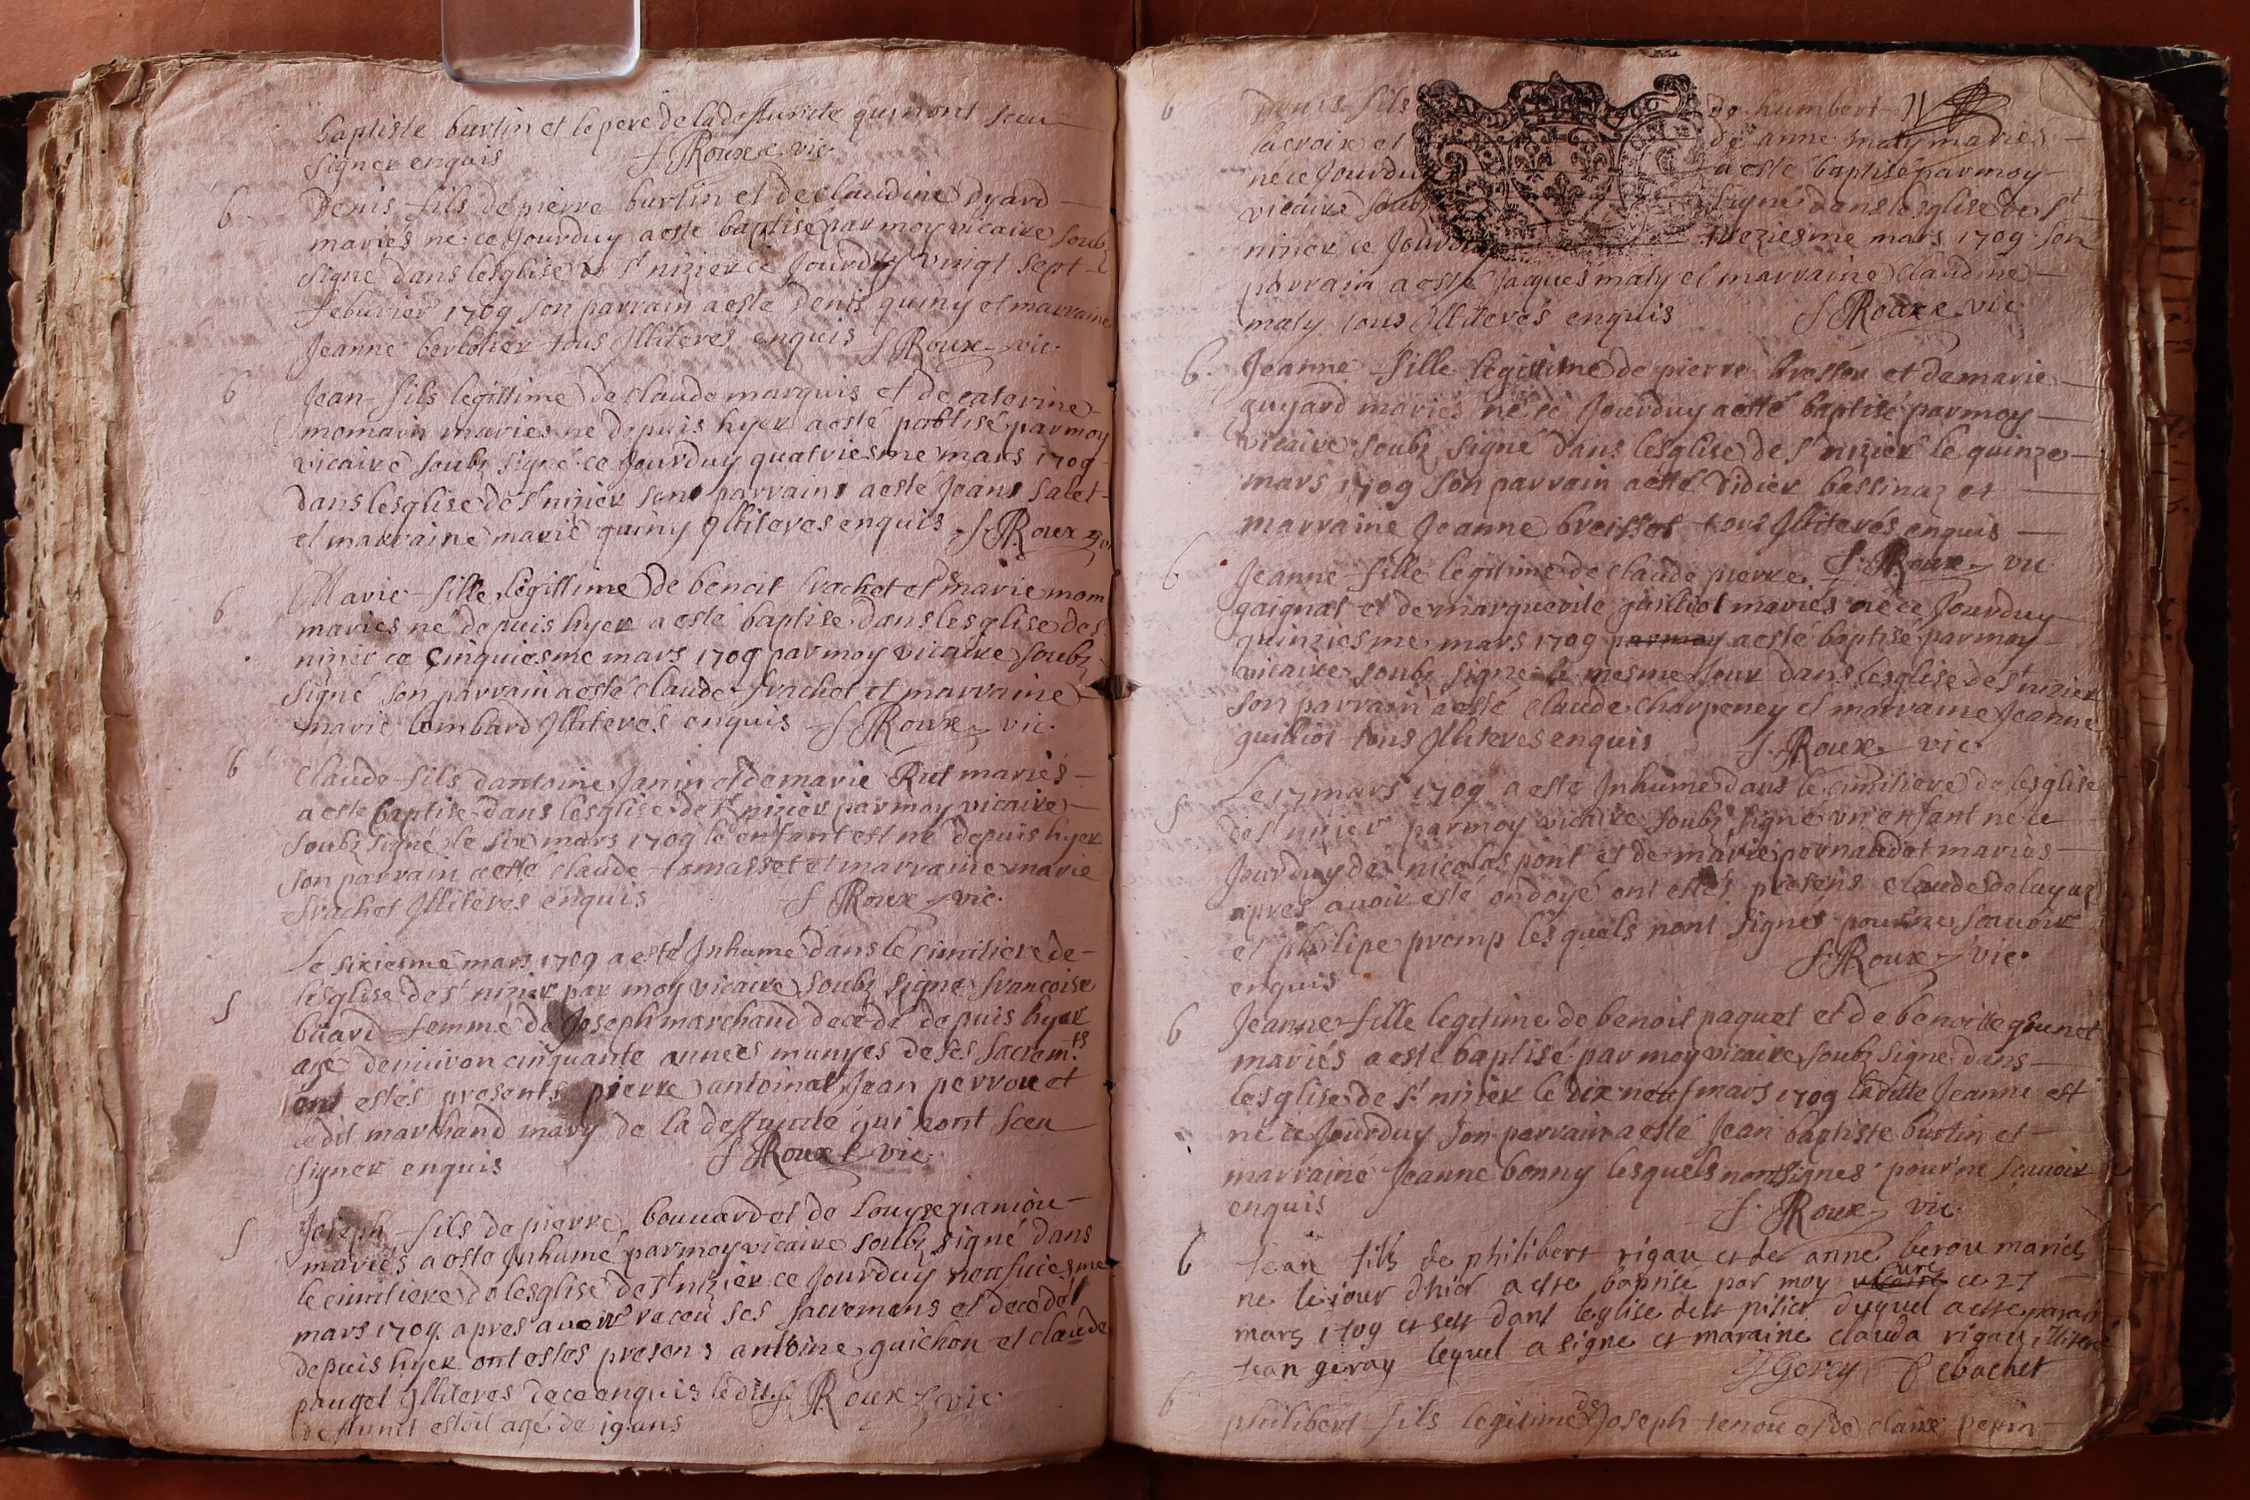 baptiste burtin et le pere de la deffuncte qui nont sceu
signer enquis S Roux vic.
6 Denis fils de pierre burtin et de claudine dyard
mariés né ce Jourduy a esté baptisé par moy vicaire soubz
signé dans lesglise de st nizier ce Jourduy vingt sept
feburier 1709 son parrain a esté denis quiny et marraine
Jeanne bertolier tous Illiteres enquis S Roux vic.
6 Jean fils legittime de claude marquis et de caterine
momain maries ne depuis hyer a esté pabtisé par moy
vicaire soubz signé ce Jourduy quatriesme mars 1709
dans lesglise de st nizier son parrain a esté Jean salet
et marraine marie quiny Illiteres enquis S Roux
6 Marie fille legittime de benoit frachet et marie mom
mariés né depuis hyer a esté baptisé dans lesglise de s
nizier ce cinquiesme mars 1709 par moy vicaire soubz
signé son parrain a esté claude frachet et marraine
marie lombard Illiterés enquis S Roux vic.
6 Claude fils dantoine Janin et de marie Rut mariés
a esté baptisé dans lesglise de st nizier par moy vicaire
soubz signé le six mars 1709 le enfant est né depuis hyer
son parrain a esté claude tomasset et marraine marie
frachet Illiteres enquis S Roux vic.
Le sixiesme mars 1709 a esté Inhumé dans le cimitiere de
S lesglise de st nizier par moy vicaire soubz signé francoise
buard femme de Joseph marchand decedé depuis hyer
agé denuiron cinquante années munyes de ses sacremts
ont estés presents pierre antoinat Jean perrou et
ledit marchand mary de la deffuncte qui nont sceu
signer enquis S Roux vic.
S Joseph fils de pierre bouuard et de Louyse pianiou
mariés a esté Inhumé par moy vicaire soubz signé dans
le cimitiere de lesglise de st nizier ce Jourduy neufuiesme
mars 1709 apres auoir receu ses sacremans et decedét
depuis hyer ont estes presens antoine guichon et claude
pauget Illiteres de ce enquis ledit S Roux vic
deffunct estoit agé de 19 ans
6 Denis fils de humbert
lacroix et de anne maty mariés
né ce Jourduy a esté baptisé par moy
vicaire soubz signé dans lesglise de st
nizier ce Jourduy treziesme mars 1709 son
parrain a esté Jacques maty et marraine claudine
maty tous Illiterés enquis S Roux vic
6. Jeanne fille legitime de pierre bresson et de marie
guyard mariés né ce Jourduy a esté baptisé par moy
vicaire soubz signé dans lesglise de st nizier le quinze
mars 1709 son parrain a esté didier bassinaz et
marraine Jeanne breisset tous Illiterés enquis
S Roux vic
6 Jeanne fille legitime de claude pierre
gaignat et de marguerite guilliot mariés né ce Jourduy
quinziesme mars 1709 par moy a esté baptisé par moy
vicaire soubz signé le mesme jour dans lesglise de st nizier
son parrain a esté claude charpeney et marraine Jeanne
guilliot tous Illiteres enquis S Roux vic.
Le 17 mars 1709 a esté Inhumé dans le cimitiere de lesglise
S de st nizier par moy vicaire soubz signé vn enfant né ce
Jourduy de nicolas pont et de marie pernaudet mariés
apres auoir esté ondoyé ont estés presens claude deluyaz
et philipe promp lesquels nont signés pour ne scauoir
enquis S Roux vic.
6 Jeanne fille legitime de benoit paquet et de benoitte
mariés a esté baptisé par moy vicaire soubz signé dans
lesglise de st nizier le dix neuf mars 1709 laditte Jeanne est
né ce Jourduy son parrain a esté Jean baptiste burtin et
marraine Jeanne bonny lesquels nont signés pour ne scauoir
enquis S Roux vic.
6 Jean fils de philibert rigau et de anne berou mariés
ne le iour dhier a este baptise par moy vicaire curé ce 27
mars 1709 et sest dans leglise de st nisier duquel a este parain
Jean geray lequel a signe et maraine clauda rigau illiteré
J Gercy Debachet
6 philibert fils legitime de Joseph tenou et de claire perin